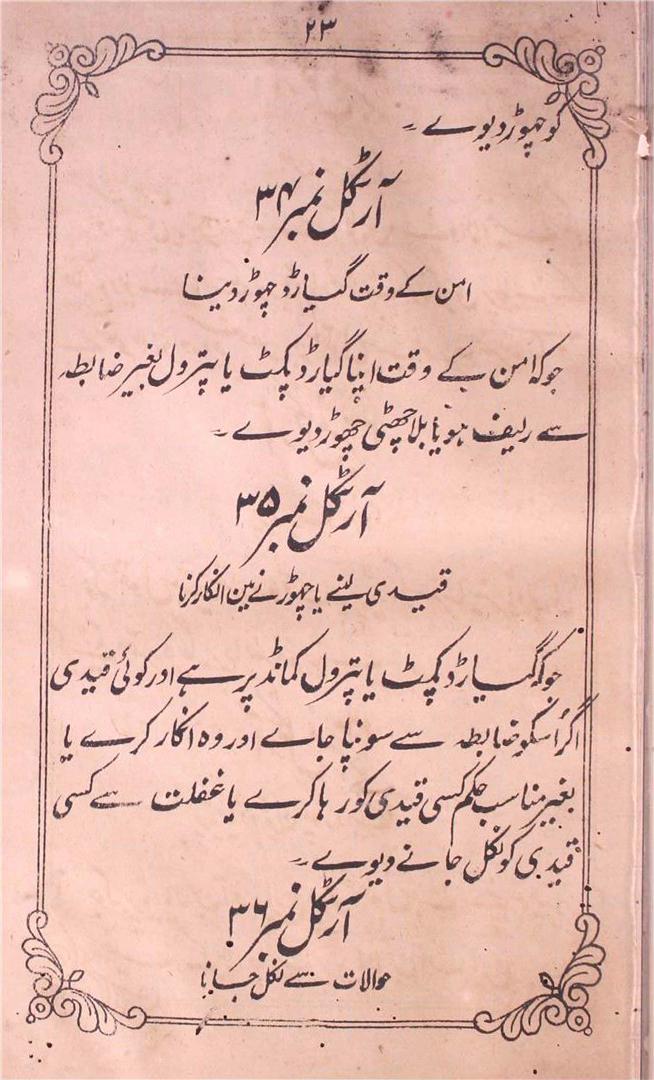 ۲۳
کو چہوڑ دیوے ۔
آرٹکل نمبر ۳۴
امن کے وقت گیارڈ چہوڑ دینا
جو کہ امن کے وقت اپنا گیارڈ پکٹ یا پترول بغیر ضابطہ
سے ریلیف ہو یا بلا چھٹی چھوڑ دیوے ۔
آرٹکل نمبر ۳۵
قیدی لینے یا چہوڑنے مین انکار کرنا
جو کہ گیارڈ پکٹ یا پترول کمانڈ پر ہے اور کوئی قیدی
اگر اُسکو ضابطہ سے سونپا جاے اور وہ انکار کرے یا
بغیر مناسب حکم کسی قیدی کو رہا کرے یا غفلت سے کسی
قیدی کو نکل جانے دیوے ۔
آرٹکل نمبر ۳۶
حوالات سے نکل جانا